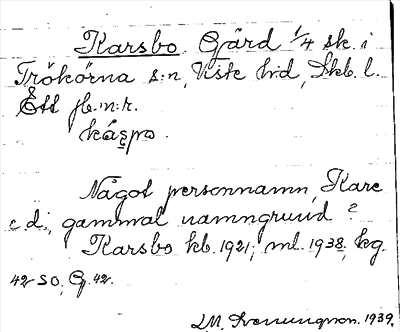 Karsbo. Gård 1/4 sk. i
Trökörna s:n, Viste hd, Skb. l.
Ett jb.n:r.
Något personnamn, Kare
e. d., gammal namngrund?
Karsbo kb. 1921; ml. 1938, kg.
42 SO, G. 42.
1939.